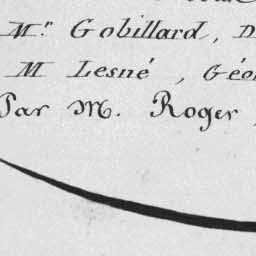 Mr. Gobillard, D
M Lesné, Géo
Par M. Roger,